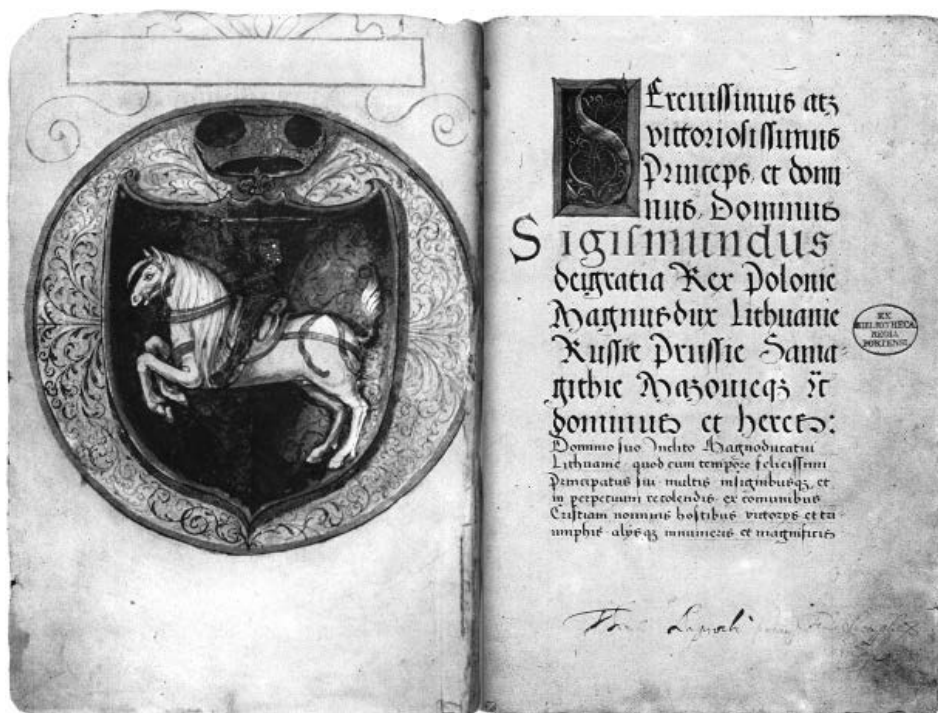 Serenissimus atqꝫ
victoriosissimus
Princeps et domi
nus. Dominus
Sigismundus
dei gratia Rex Polonie
Magnus dux Lithuanie
Russie Prussie Sama-
githie Mazovieqꝫ ꝛc̄
dominus et heres:
Dominio suo Inclito Magnoducatui
Lithuanie quod eum tempore felicissimi
Principatus sui multis insignibusqꝫ et
in perpetuum recolendis ex comunibus
Cristiani nominis hostibus victorys et tri
umphis alysqꝫ innumeris et magnificis
EX
BIBLIOTHECA
REGIA